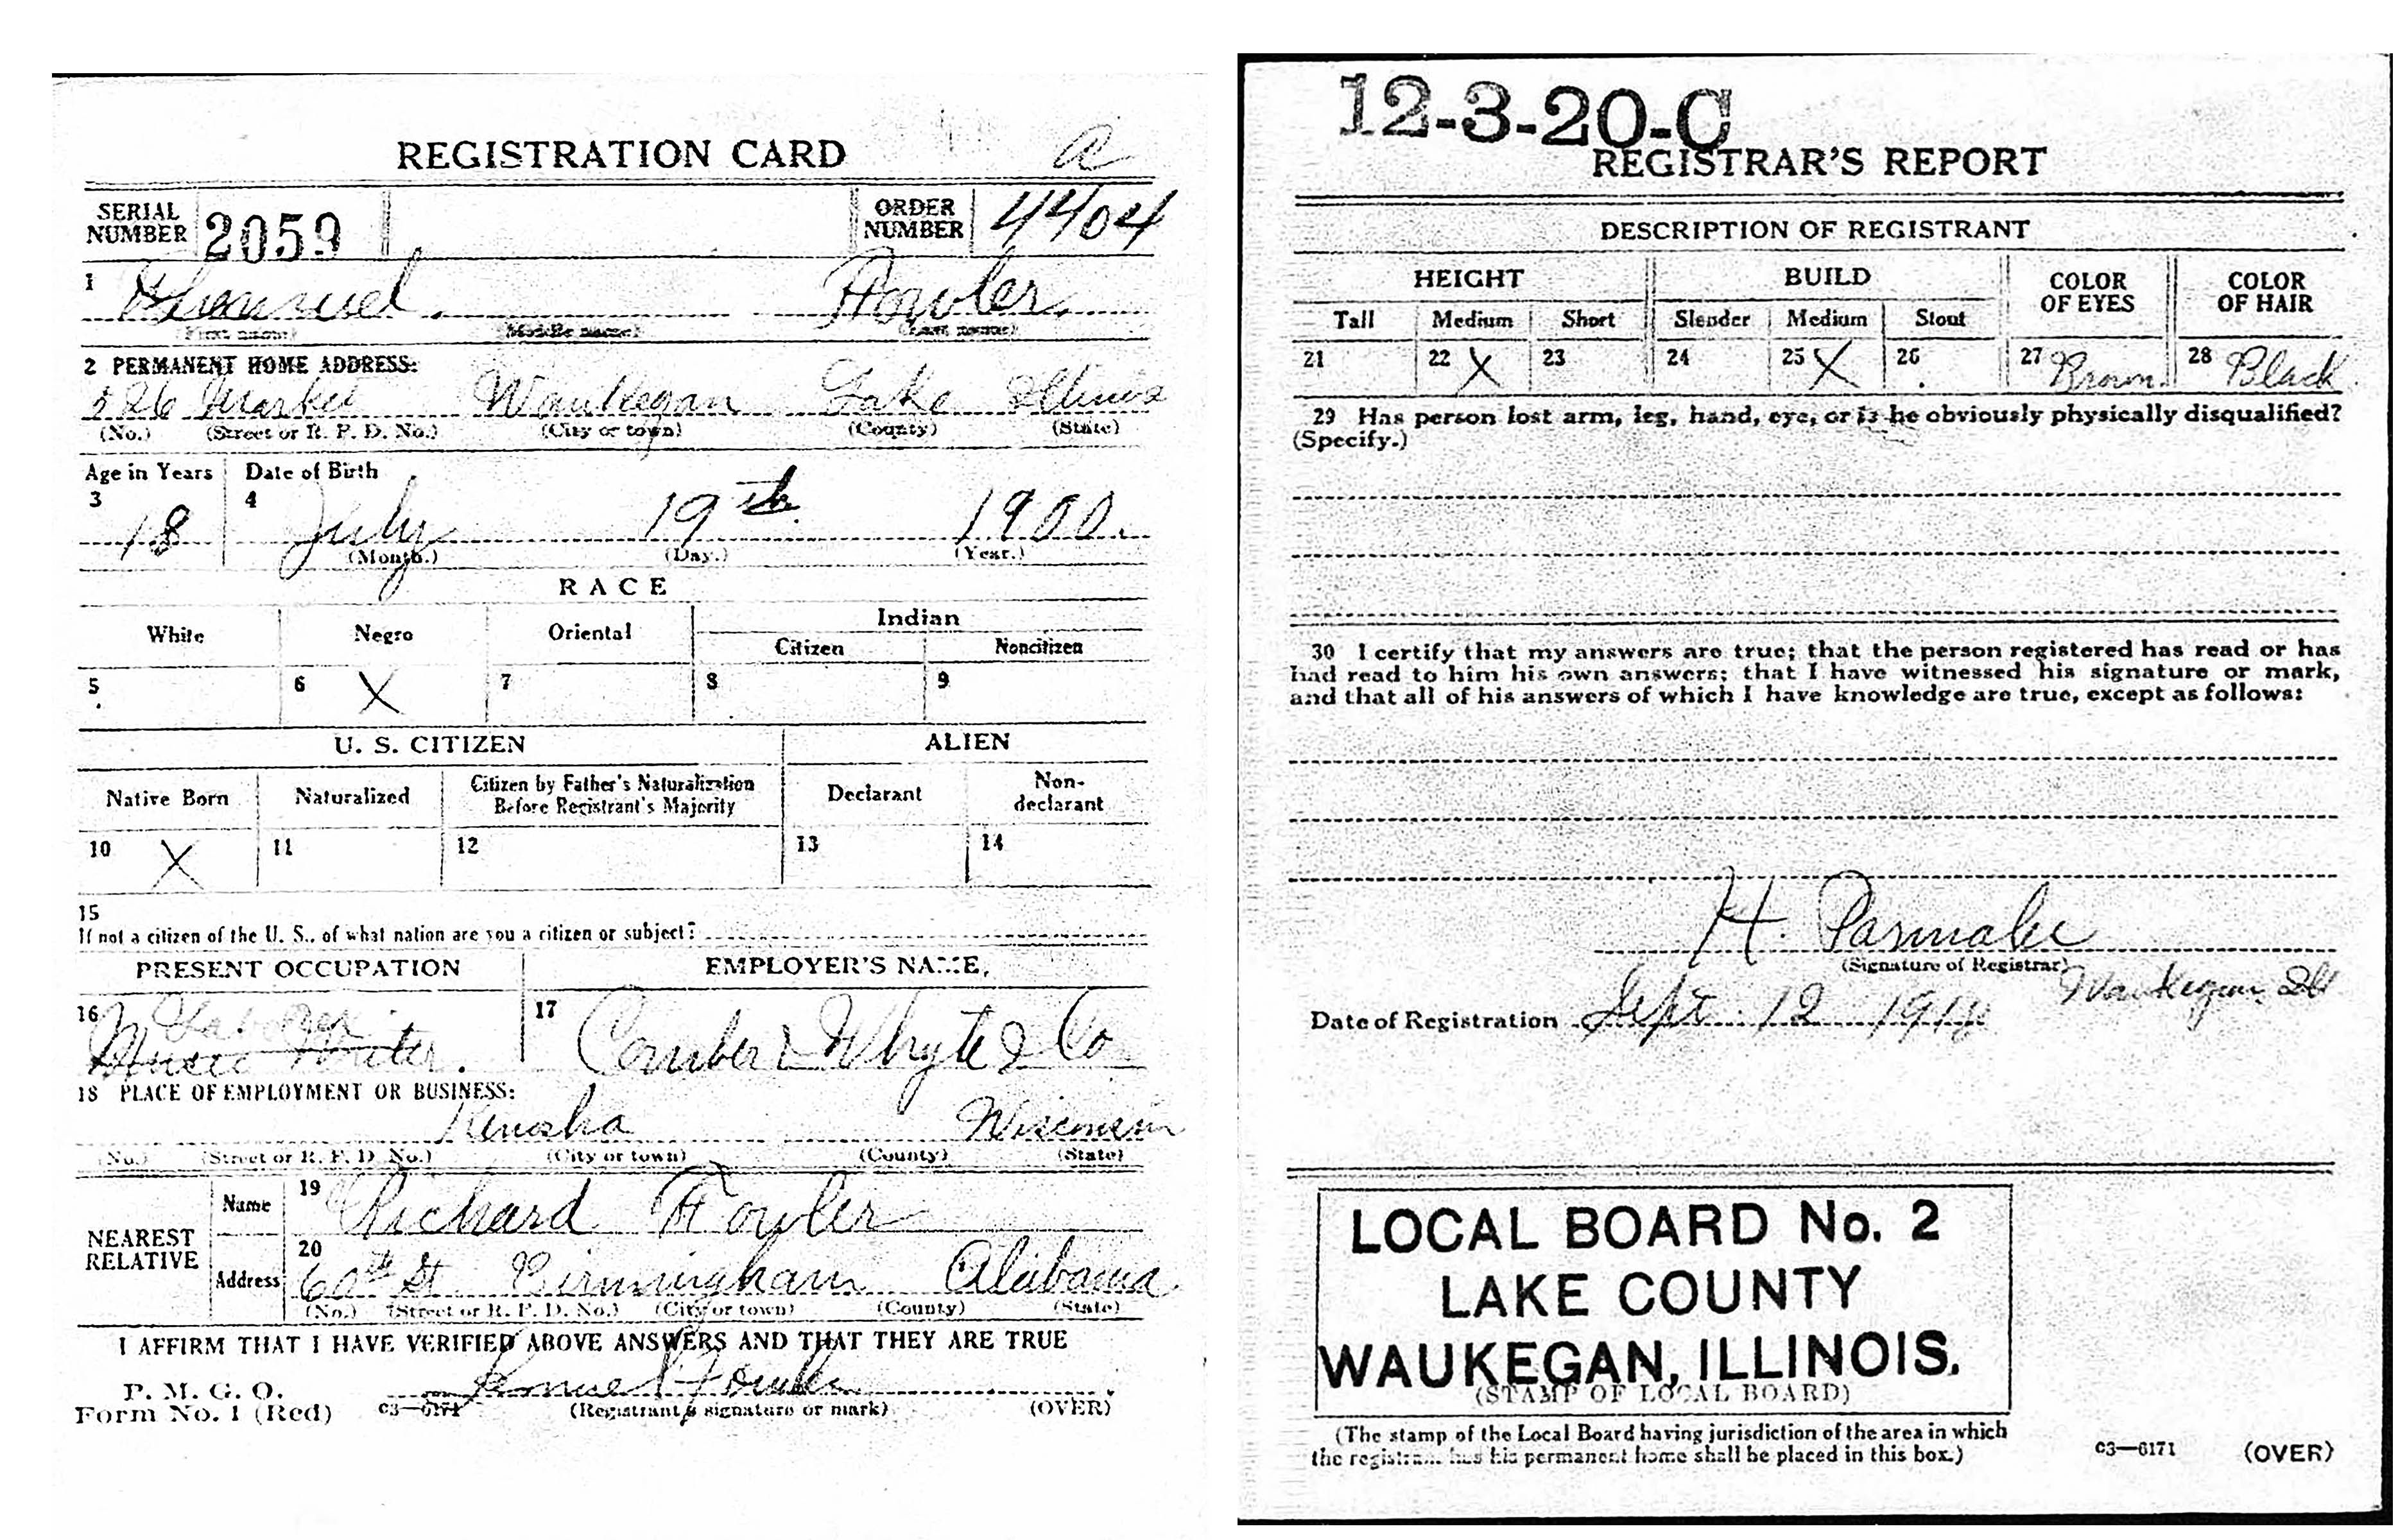 REGISTRATION CARD a
SERIAL NUMBER 2059 ORDER NUMBER 4404
1 Fowler
(First name) (Middle name) (Last name)
2 PERMANENT HOME ADDRESS:
526 Market Waukegan Lake Illinois
(No.) (Street or R. F. D. No.) (City or town) (County) (State)
Age in Years Date of Birth
3 18 4 July 19th 1900.
(Month.) (Day.) (Year.)
RACE
White Negro Oriental Indian
Citizen Noncitizen
5 6 X 7 8 9
U. S. CITIZEN ALIEN
Native Born Naturalized Citizen by Father's Naturalization Before Registrant's Majority Declarant Non-declarant
10 X 11 12 13 14
15
If not a citizen of the U. S., of what nation are you a citizen or subject?
PRESENT OCCUPATION EMPLOYER'S NAME,
16 Laborer 17
Music Writer. Whyte & Co
18 PLACE OF EMPLOYMENT OR BUSINESS:
Kenosha Wisconsin
(No.) (Street or R. F. D. No.) (City or town) (County) (State)
NEAREST RELATIVE
Name 19 Richard Fowler
Address 20 60th St Birmingham Alabama
(No.) (Street or R. F. D. No.) (City or town) (County) (State)
I AFFIRM THAT I HAVE VERIFIED ABOVE ANSWERS AND THAT THEY ARE TRUE
P. M. G. O. Fowler
Form No. 1 (Red) c3—6171 (Registrant's signature or mark) (OVER)
12-3-20-C
REGISTRAR'S REPORT
DESCRIPTION OF REGISTRANT
HEIGHT BUILD COLOR OF EYES COLOR OF HAIR
Tall Medium Short Slender Medium Stout
21 22 X 23 24 25 X 26 27 Brown 28 Black
29 Has person lost arm, leg, hand, eye, or is he obviously physically disqualified?
(Specify.)
30 I certify that my answers are true; that the person registered has read or has
had read to him his own answers; that I have witnessed his signature or mark,
and that all of his answers of which I have knowledge are true, except as follows:
H. Parmalee
(Signature of Registrar)
Date of Registration Sept 12 1918 Waukegan, Ill
LOCAL BOARD No. 2
LAKE COUNTY
WAUKEGAN, ILLINOIS.
(STAMP OF LOCAL BOARD)
(The stamp of the Local Board having jurisdiction of the area in which
the registrant has his permanent home shall be placed in this box.)
c3—6171 (OVER)